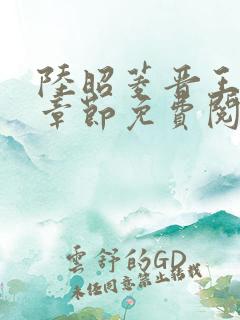 陸昭菱晋王
章節免費閱
雲舒的GD
未经同意禁止转载